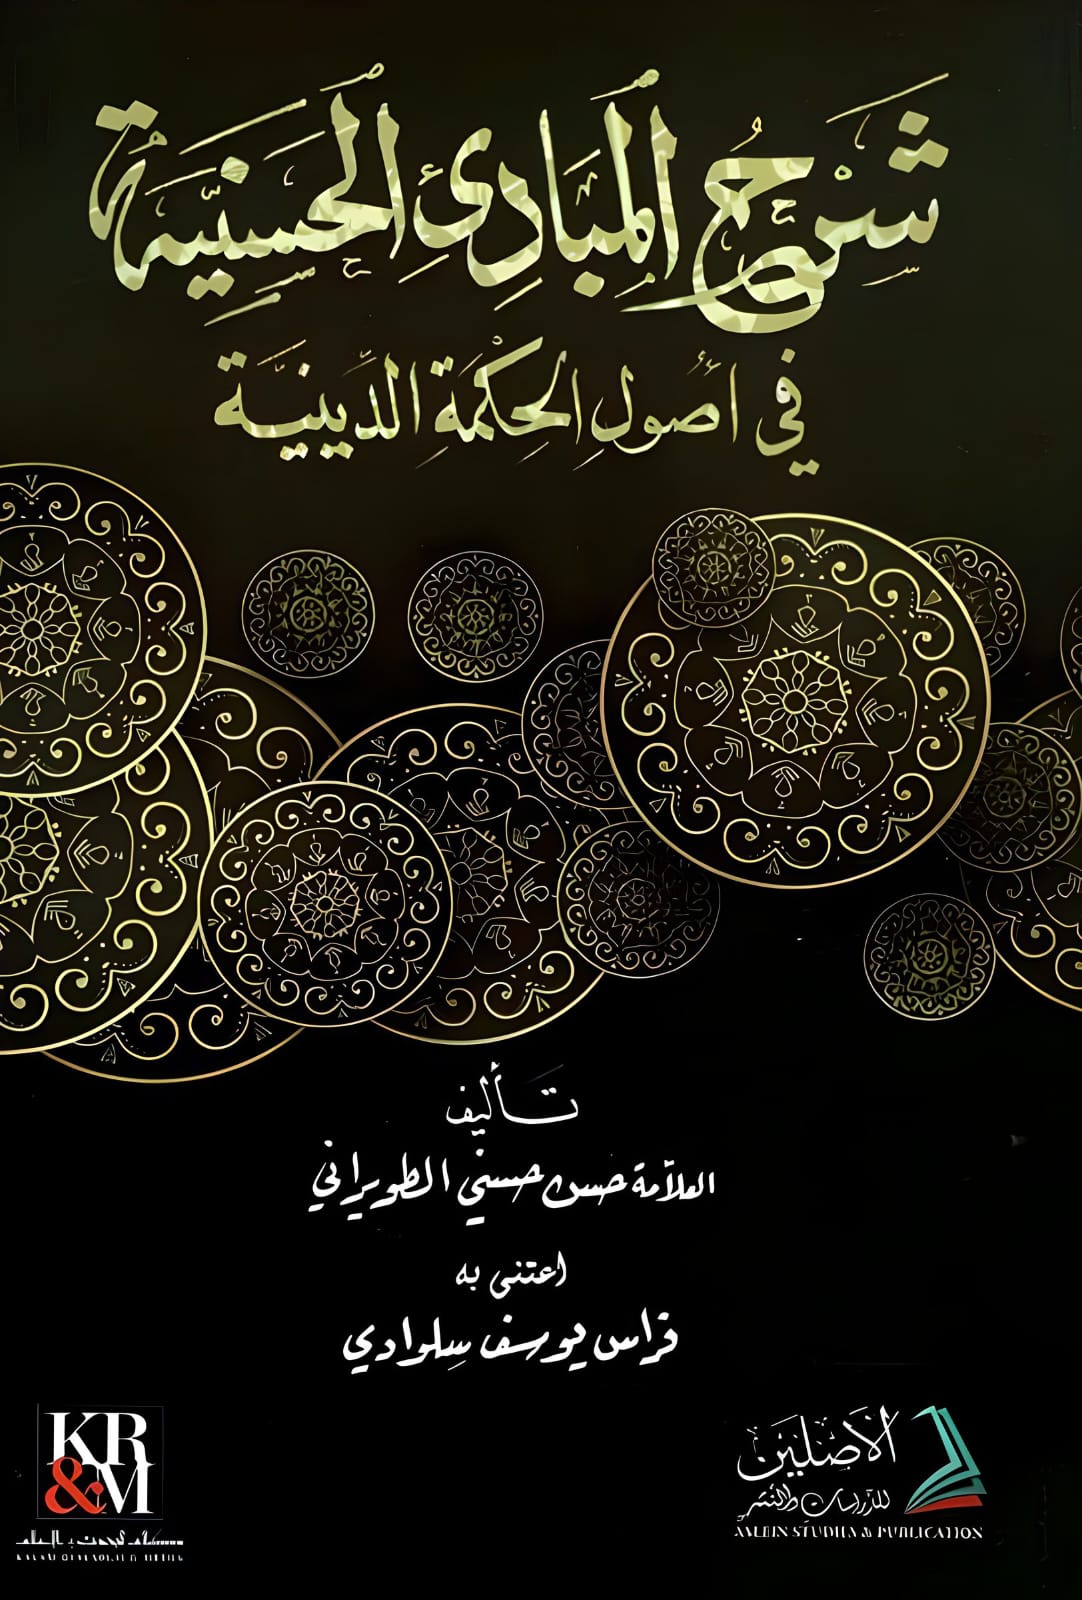 شَرْحُ المَبَادِئِ الحَسَنِيَّةِ
في أُصُولِ الحِكْمَةِ الدِّينِيَّةِ
تَأليف
العلّامة حسن حسني الطويراني
اعتنى به
فراس يوسف سلوادي
KR
&M
الأَصْلَيْن
للدّراسات والنّشر